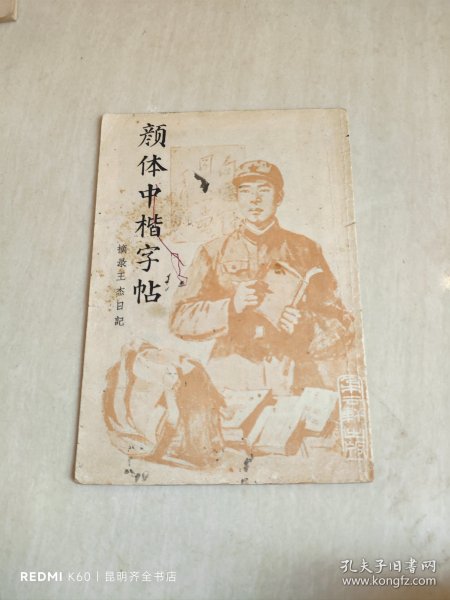 顔体中楷字帖
摘录王杰日記
REDMI K60 | 昆明齐全书店
孔夫子旧书网
www.kongfz.com